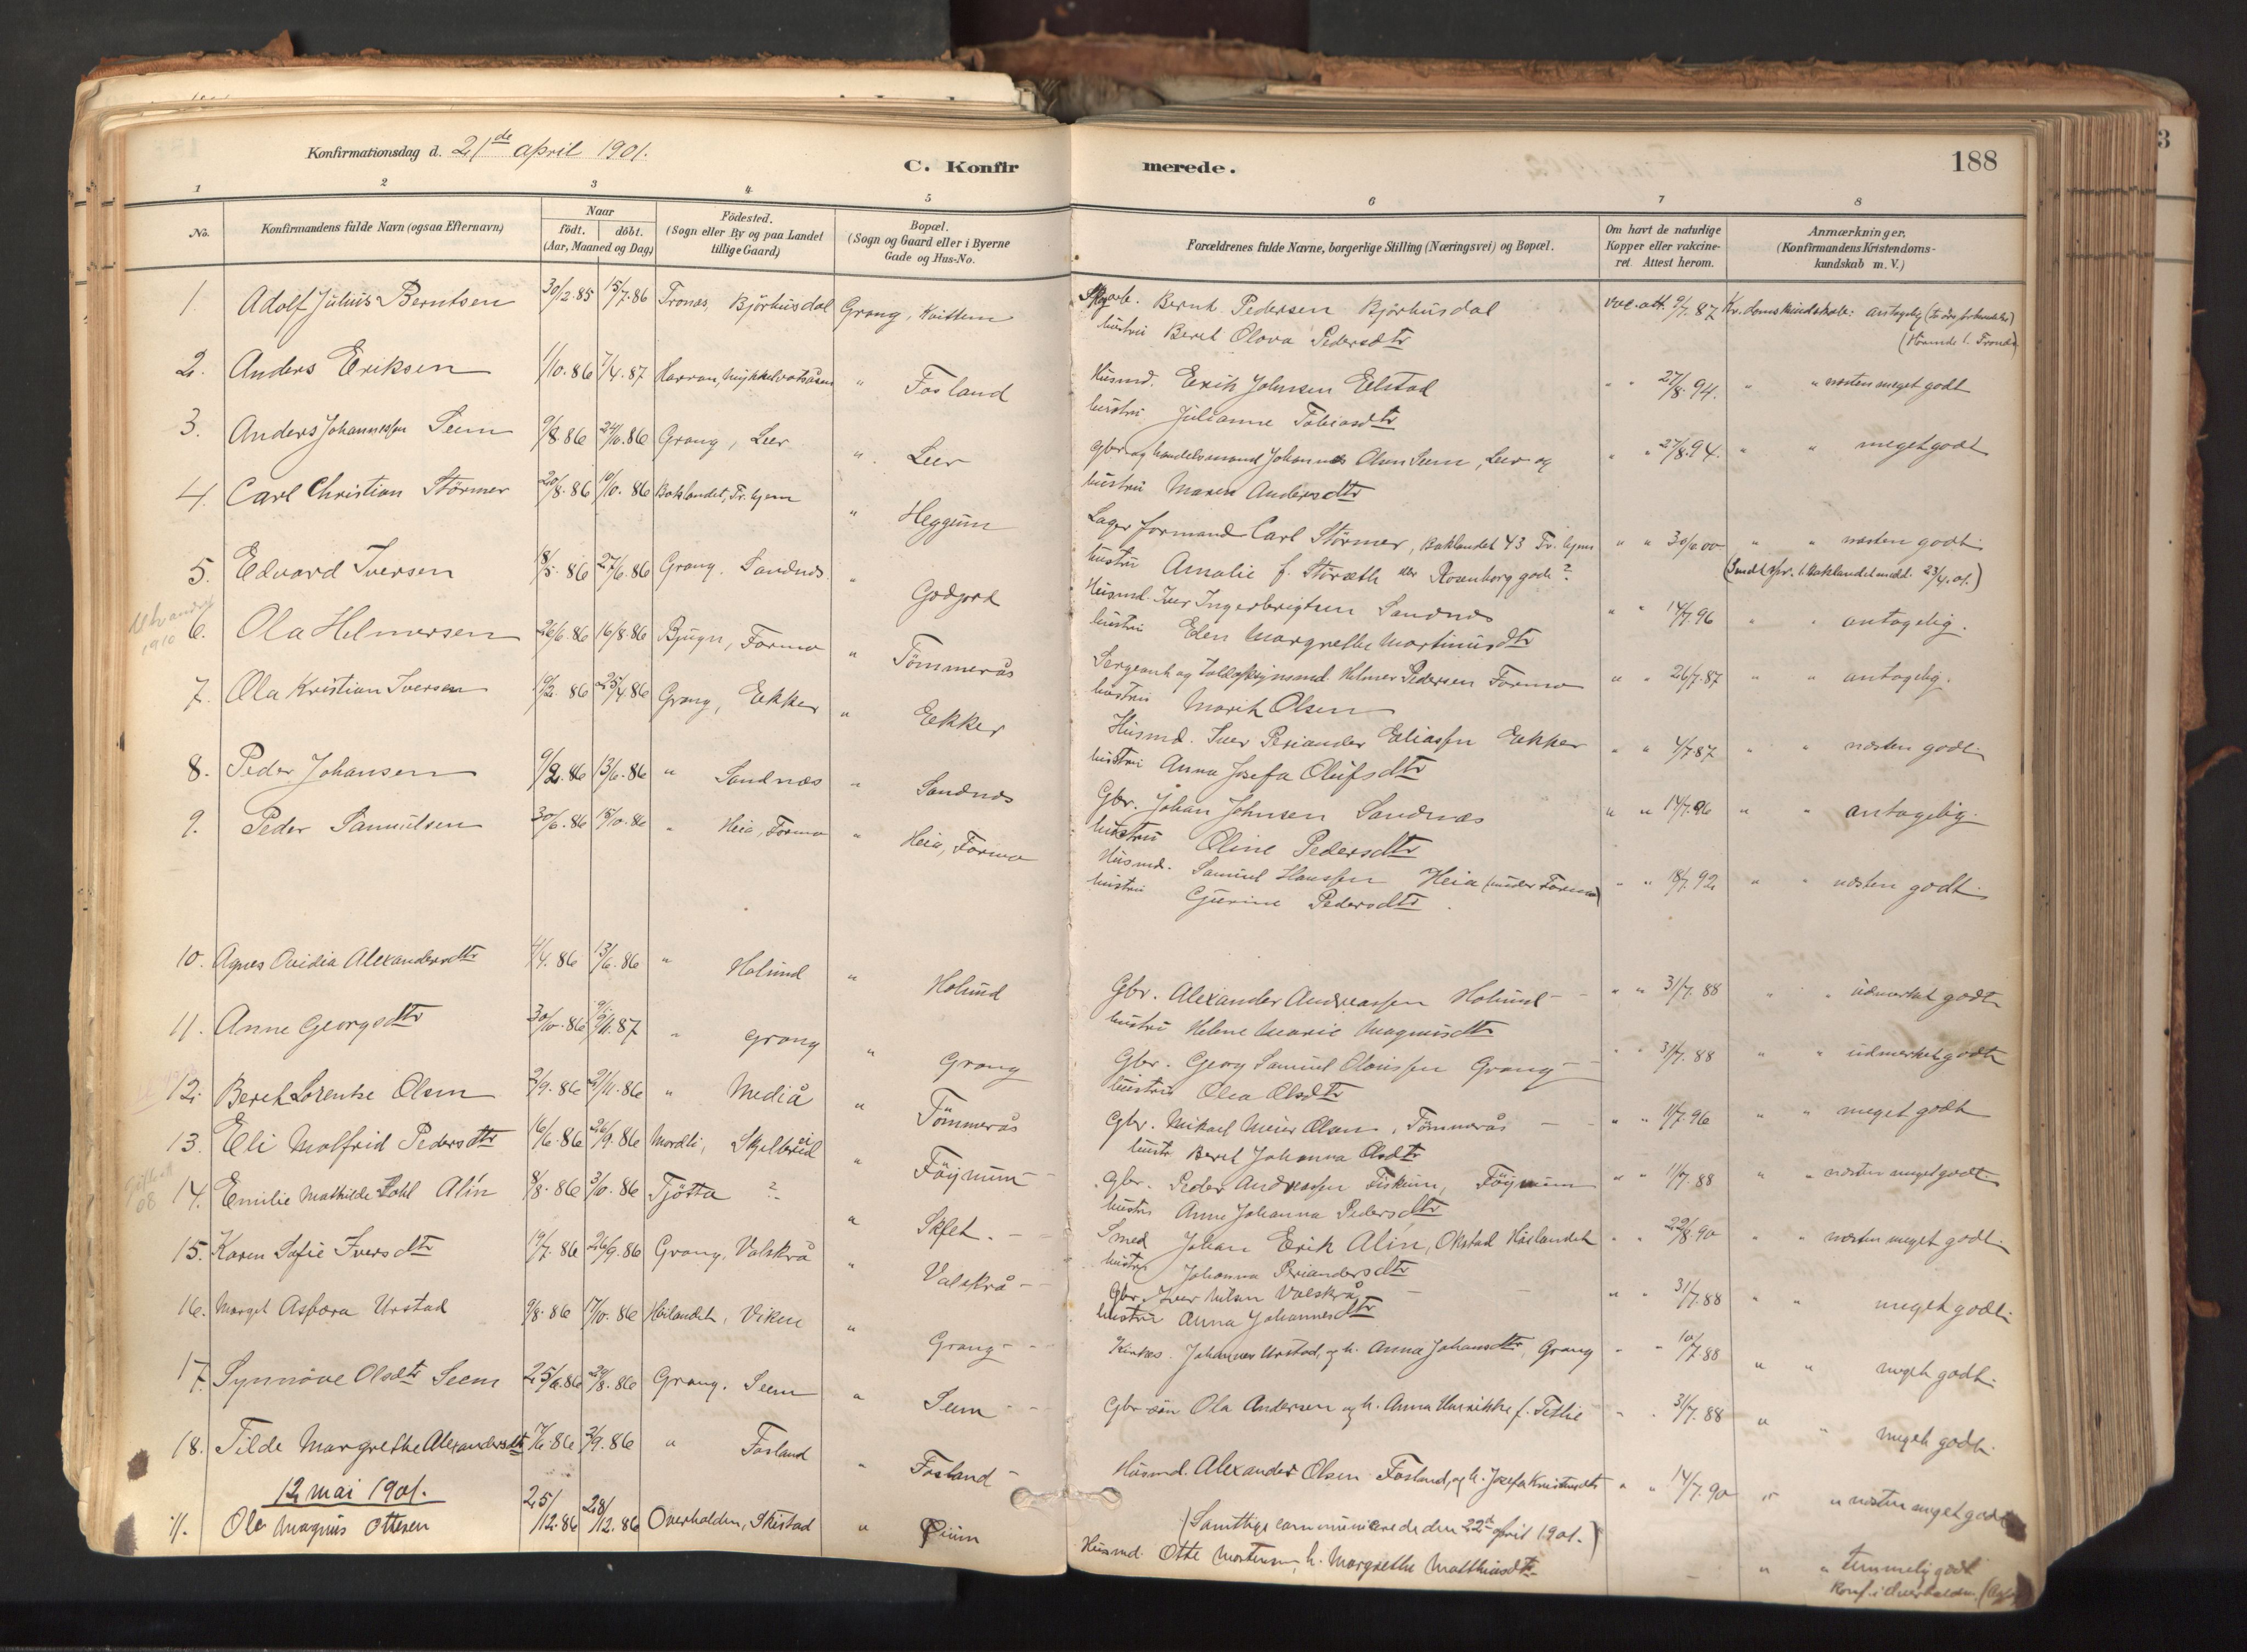 Konfirmationsdag d. 21de april 1901.
C. Konfir
merede.
188
1 2 3 4 5 6 7 8
No.
Konfirmandens fulde Navn (ogsaa Efternavn)
Naar
födt. döbt.
(Aar, Maaned og Dag)
Födested.
(Sogn eller By og paa Landet
tillige Gaard)
Bopæl.
(Sogn og Gaard eller i Byerne
Gade og Hus-No.
Forældrenes fulde Navne, borgerlige Stilling (Næringsvei) og Bopæl.
Om havt de naturlige
Kopper eller vakcine-
ret. Attest herom.
Anmærkninger.
(Konfirmandens Kristendoms-
kundskab m. V.)
1. Adolf Julius Berntsen 30/12.85 15/7.86 Tronæs, Bjørhusdal Grong,
Bernt Pedersen Bjørhusdal vac. att. 9/7.87 Kr.domskundskab: antagelig
hustru Beret Olova Pedersdtr
2. Anders Eriksen 1/10.86 7/4.87 Harran, " Fosland
Husmd. Erik Johnsen Elstad " " 27/8.94. " " næsten meget godt
hustru Julianne Tobiasdtr
3. Anders Johannessen Seem 9/8 86 24/10.86 Grong, Leer " Leer
Gbr. og handelsmand Johannes Olsen Seem, Leer og " " 27/8.94. " " meget godt
hustru Maren Andersdtr
4. Carl Christian Störmer 20/8.86 10/10.86 Baklandet, Tr.hjem " Heggum
Lagerformand Carl Störmer, Baklandet 43 Tr.hjem " " 30/6.00 " " næsten godt
hustru Amalie f. Störseth Rosenborg gade? 23/4.01.)
5. Edvard Iversen 18/5.86 27/6.86 Grong. Sandnes " Godjord
Husmd. Iver Ingebrigtsen Sandnes " " 14/7.96 " " antagelig.
hustru Elen Margrethe Martinusdtr
Utvandret
1910
6. Ola Helmersen 26/6.86 16/8.86 Bjugn, Formo " Tömmerås
Sergeant og Helmer Pedersen Formo " " 26/7.87 " " antagelig.
hustru Marit Olsen
7. Ola Kristian Iversen 10/2 86 25/4.86 Grong, Ekker " Ekker
Husmd. Iver Periander Eliassen Ekker " " 4/7.87 " " næsten godt
hustru Anna Josefa Olufsdtr
8. Peder Johansen 9/2.86 13/6.86 " Sandnæs " Sandnes
Gbr. Johan Johnsen Sandnæs " " 14/7.96 " " antagelig.
hustru Oline Pedersdtr
9. Peder Samuelsen 30/6.86 15/10.86 " Heia, Formo " Heia, Formo
Husmd. Samuel Hanssen Heia (under Formo) " " 18/7.92 " " næsten godt
hustru Gurine Pedersdtr.
10. Agnes Ovidia Alexandersdtr 4/4.86 13/6.86 " Holund " Holund
Gbr. Alexander Andreassen Holund " " 31/7.88 " " udmerket godt
hustru Helene Marie Magnusdtr
11. Anne Georgsdtr 30/10.86 9/1.87 " Grong " Grong
Gbr. Georg Samuel Olaussen Grong " " 31/7.88 " " udmerket godt
hustru Olea Olsdtr
12. Beret Lorentse Olsen 2/9.86 21/11.86 " Mediå " Tömmerås
Gbr. Mikael Meier Olsen, Tömmerås " " 11/7.96 " " meget godt
hustr. Beret Johanna Olsdtr
13. Eli Molfrid Pedersdtr 16/6.86 26/9.86 Mordli, Skjelbreid " Föynum
Gbr. Peder Andreassen Fiskum, Föynum " " 11/7.88 " " næsten meget godt
hustru Anne Johanna Pedersdtr
08
14. Emilie Mathilde Alin 8/8.86 3/10.86 Tjötta ? " Sklet.
Smed Johan Erik Alin, Okstad Höilandet " " 22/8.90 " " næsten meget godt
hustru Johanna Periandersdtr
15. Karen Sofie Iversdtr 19/7.86 26/9.86 Grong, Valskrå " Valskrå
Gbr. Iver Nilsen Valskrå " " 31/7.88 " " meget godt.
hustru Anna Johannesdtr
16. Margit Asbora Urstad 9/8.86 17/10.86 Höilandet, Viken " Grong
Johannes Urstad, og h. Anna Johansdtr, Grong " " 10/7.88 " " meget godt.
17. Synnöve Olsdtr Seem 25/6.86 29/8.86 Grong. Seem " Seem
Gbr. sön Ola Andersen og h. Anna f. Tetlie " " 31/7.88 " " meget godt.
18. Tilde Margrethe Alexandersdtr 17/6.86 3/9.86 " Fosland " Fosland
Husmd. Alexander Olsen Fosland, og h. Josefa " " 14/7.90 " " næsten meget godt
(Samtlige communicerede den 22de april 1901.)
12 mai 1901.
1. Ole Magnus Ottesen 25/12.86 28/12.86 Overhalden, Skistad "
Husmd. Otte Mortensen, h. Margrethe Matthiasdtr. - " " temmelig godt
Konf. i Overhalden.